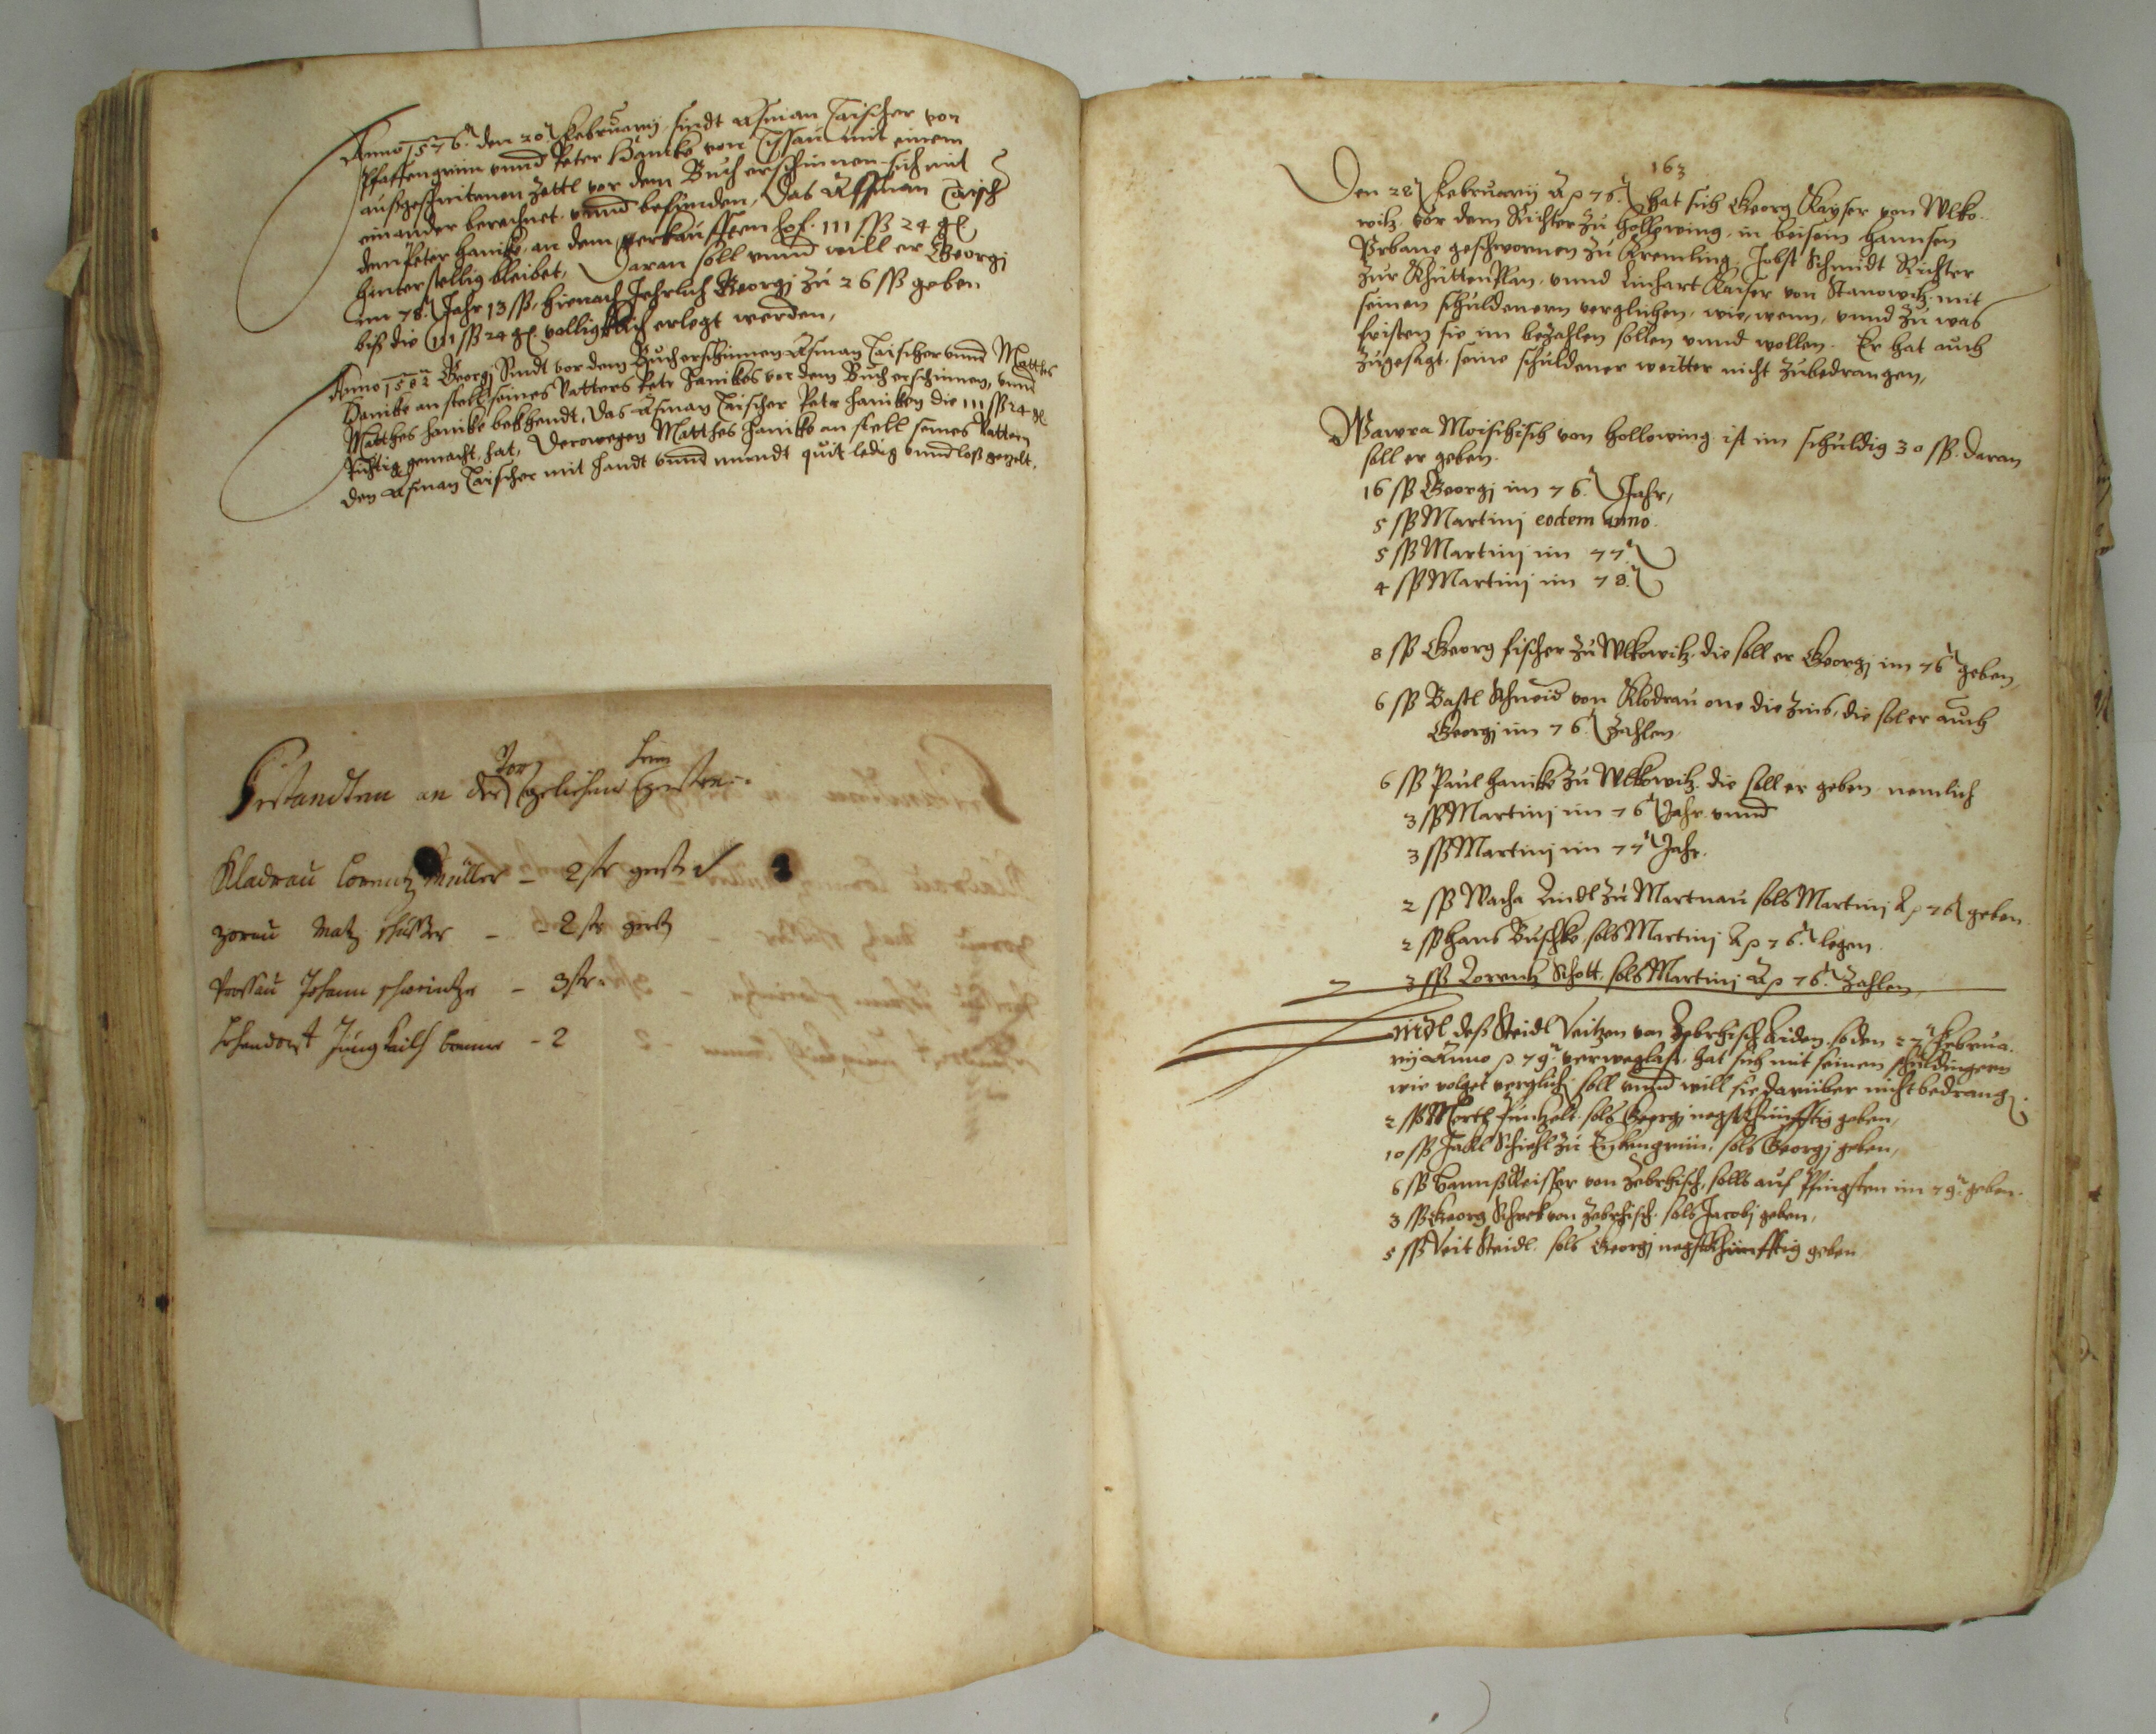 Anno 1576 den 20 Februarij sindt Aßman Teischer von
Pfaffengrün vnnd Peter Hanike von Tissau mit einem
außgeschnitenen Zettl vor dem Buch erschinnen sich mit
einander berechnet vnnd befunden, Das Aßman Teisch
dem Peter Hanike, an dem verkaufften Hof 111 ßß 24 gl
hinterstellig bleibet, Daran soll vnnd will er Georgj
im 78 Jahr 13 ßß, hienach Jehrlich Georgj zu 26 ßß geben
biß die 111 ßß 24 gl völligklich erlegt werden,
Anno 1582 Georgj Sindt vor dem Buch erschinnen Aßman Teischer vnnd Matthes
Hanike an stell seines Vatters Petr Hanikes vor dem Buch erschinnen, vnnd
Matthes Hanike bekhendt, Das Aßman Teischer Petr Haniken die 111 ßß 24 gl
richtig gemacht hat, Derowegen Matthes Hanike an stell seines Vattern
den Aßman Teischer mit handt vnnd mundt quit ledig vnnd loß gezelt.
Restandten an der geliehenen gersten
Kladrau Lorentz Müller - 2 str gerst
Matz - - 2 str gerst
Johann - 3 str
Jung - 2
163
Den 28 Februarij Ao 76 hat sich Georg Kayser von Wlko
witz, vor dem Richter zu Hollewing, in beisein Hannsen
Vrbane geschwornen zu Kremling, Jobst Schmidt Richter
zur KhuttenPlan, vnnd Linhart Kaiser von Stanowitz mit
seinen schuldenern verglichen, wie, wenn, vnnd zu was
fristen sie im bezahlen sollen vnnd wollen. Er hat auch
zugesagt, seine schuldener weitter nicht zubedrangen,
Wawra Moischisch von Hollewing ist im schuldig 30 ßß. daran
soll er geben.
16 ßß Georgj im 76. Jahr,
5 ßß Martinj eodem anno.
5 ßß Martinj im 77
4 ßß Martinj im 78.
8 ßß Georg Fischer zu Wlkowitz, die soll er Georgj im 76 geben,
6 ßß Bastl Schneid von Klodrau one die Zins, die sol er auch
Georgj im 76 Zahlen.
6 ßß Paul Hanike zu Wlkowitz. die soll er geben nemlich
3 ßß Martinj im 76 Jahr vnnd
3 ßß Martinj im 77 Jahr.
2 ßß Macha Lindl zu Martnau sols Martinj Ao 76 geben
2 ßß Hans Buschke, sols Martinj Ao 76. legen.
3 ßß Lorentz Schott, sols Martinj Ao 76. Zahlen,
deß Steidl Veitzen von Zebehisch Aiden, so den 27 Februa
rij Anno 79 hat sich mit seinen schuldingern
wie volget verglichen soll vnnd will sie darüber nicht bedrang.
2 ßß Mertl sols Georgj negstkhünfftig geben,
10 ßß Jakl Schiehl zu sols Georgj geben,
6 ßß Hannß Reisser von Zebehisch, solls auf Pfingsten im 79 geben.
3 ßß Georg Schrek von Zebehisch sols Jacobj geben,
5 ßß Veit Steidl. sols Georgj negstkhünfftig geben